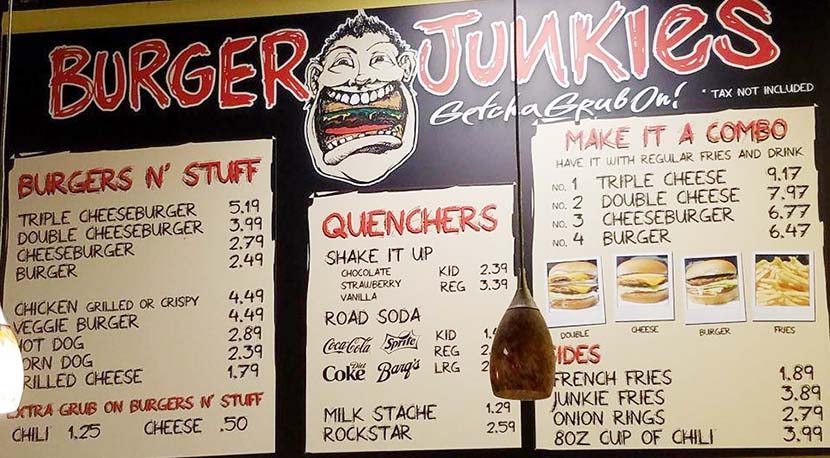 BURGER JUNKIES
Getcha Grub On!
* TAX NOT INCLUDED
BURGERS N' STUFF
TRIPLE CHEESEBURGER 5.19
DOUBLE CHEESEBURGER 3.99
CHEESEBURGER 2.79
BURGER 2.49
CHICKEN GRILLED OR CRISPY 4.49
VEGGIE BURGER 4.49
HOT DOG 2.89
CORN DOG 2.39
GRILLED CHEESE 1.79
EXTRA GRUB ON BURGERS N' STUFF
CHILI 1.25 CHEESE .50
QUENCHERS
SHAKE IT UP
CHOCOLATE KID 2.39
STRAWBERRY REG 3.39
VANILLA
ROAD SODA
Coca-Cola Sprite KID
REG
Diet Coke Barq's LRG
MILK STACHE 1.29
ROCKSTAR 2.59
MAKE IT A COMBO
HAVE IT WITH REGULAR FRIES AND DRINK
NO. 1 TRIPLE CHEESE 9.17
NO. 2 DOUBLE CHEESE 7.97
NO. 3 CHEESEBURGER 6.77
NO. 4 BURGER 6.47
DOUBLE CHEESE BURGER FRIES
SIDES
FRENCH FRIES 1.89
JUNKIE FRIES 3.89
ONION RINGS 2.79
8OZ CUP OF CHILI 3.99